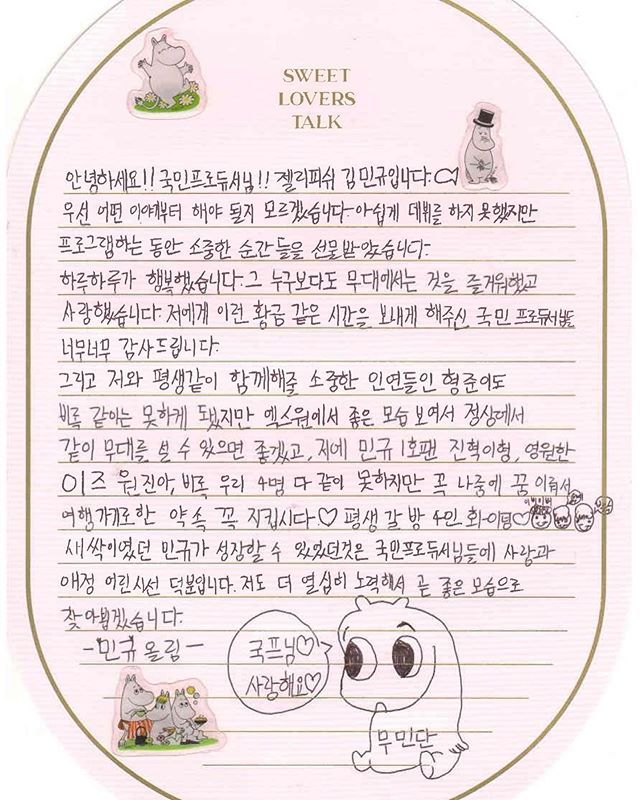 SWEET
LOVERS
TALK
안녕하세요!! 국민프로듀서님!! 젤리피쉬 김민규입니다.
우선 어떤 이야기부터 해야 될지 모르겠습니다. 아쉽게 데뷔를 하지 못했지만
프로그램하는 동안 소중한 순간들을 선물받았습니다.
하루하루가 행복했습니다. 그 누구보다도 무대에서는 것을 즐거워했고
사랑했습니다. 저에게 이런 황금 같은 시간을 보내게 해주신 국민 프로듀서님들
너무너무 감사드립니다.
그리고 저와 평생같이 함께해줄 소중한 인연들인 형준이도
비록 같이는 못하게 됐지만 엑스원에서 좋은 모습 보여서 정상에서
같이 무대를 설 수 있으면 좋겠고, 저에 민규 1호팬 진혁이형, 영원한
이즈 원진아, 비록 우리 4명 다 같이 못하지만 꼭 나중에 꿈 이뤄서
여행가기로한 약속 꼭 지킵시다♡ 평생 갈 방 4인 회-이펌♡
새싹이였던 민규가 성장할 수 있었던것은 국민프로듀서님들에 사랑과
애정 어린시선 덕분입니다. 저도 더 열심히 노력해서 곧 좋은 모습으로
찾아뵙겠습니다.
-민규 올림-
국프님♡
사랑해요♡
무민단